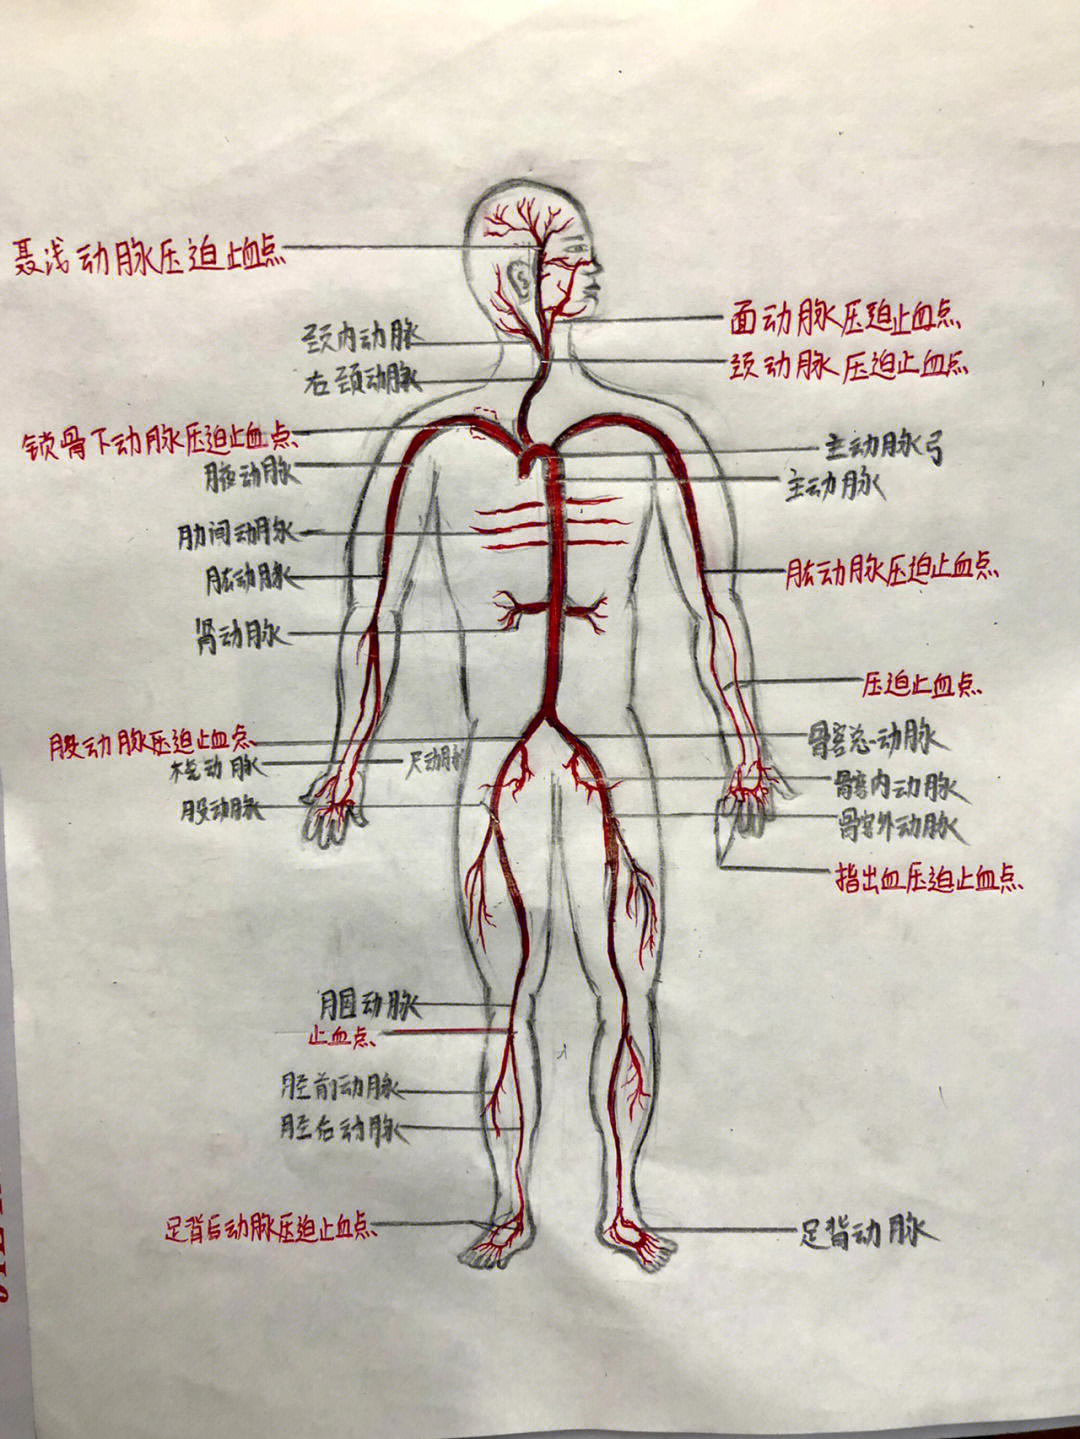 聂浅动脉压迫止血点
面动脉压迫止血点
颈内动脉
颈动脉压迫止血点
右颈动脉
锁骨下动脉压迫止血点
主动脉弓
腋动脉
主动脉
肋间动脉
肱动脉
肱动脉压迫止血点
肾动脉
压迫止血点
股动脉压迫止血点
髂总动脉
桡动脉
尺动脉
髂内动脉
股动脉
髂外动脉
指出血压迫止血点
腘动脉
止血点
胫前动脉
胫右动脉
足背后动脉压迫止血点
足背动脉